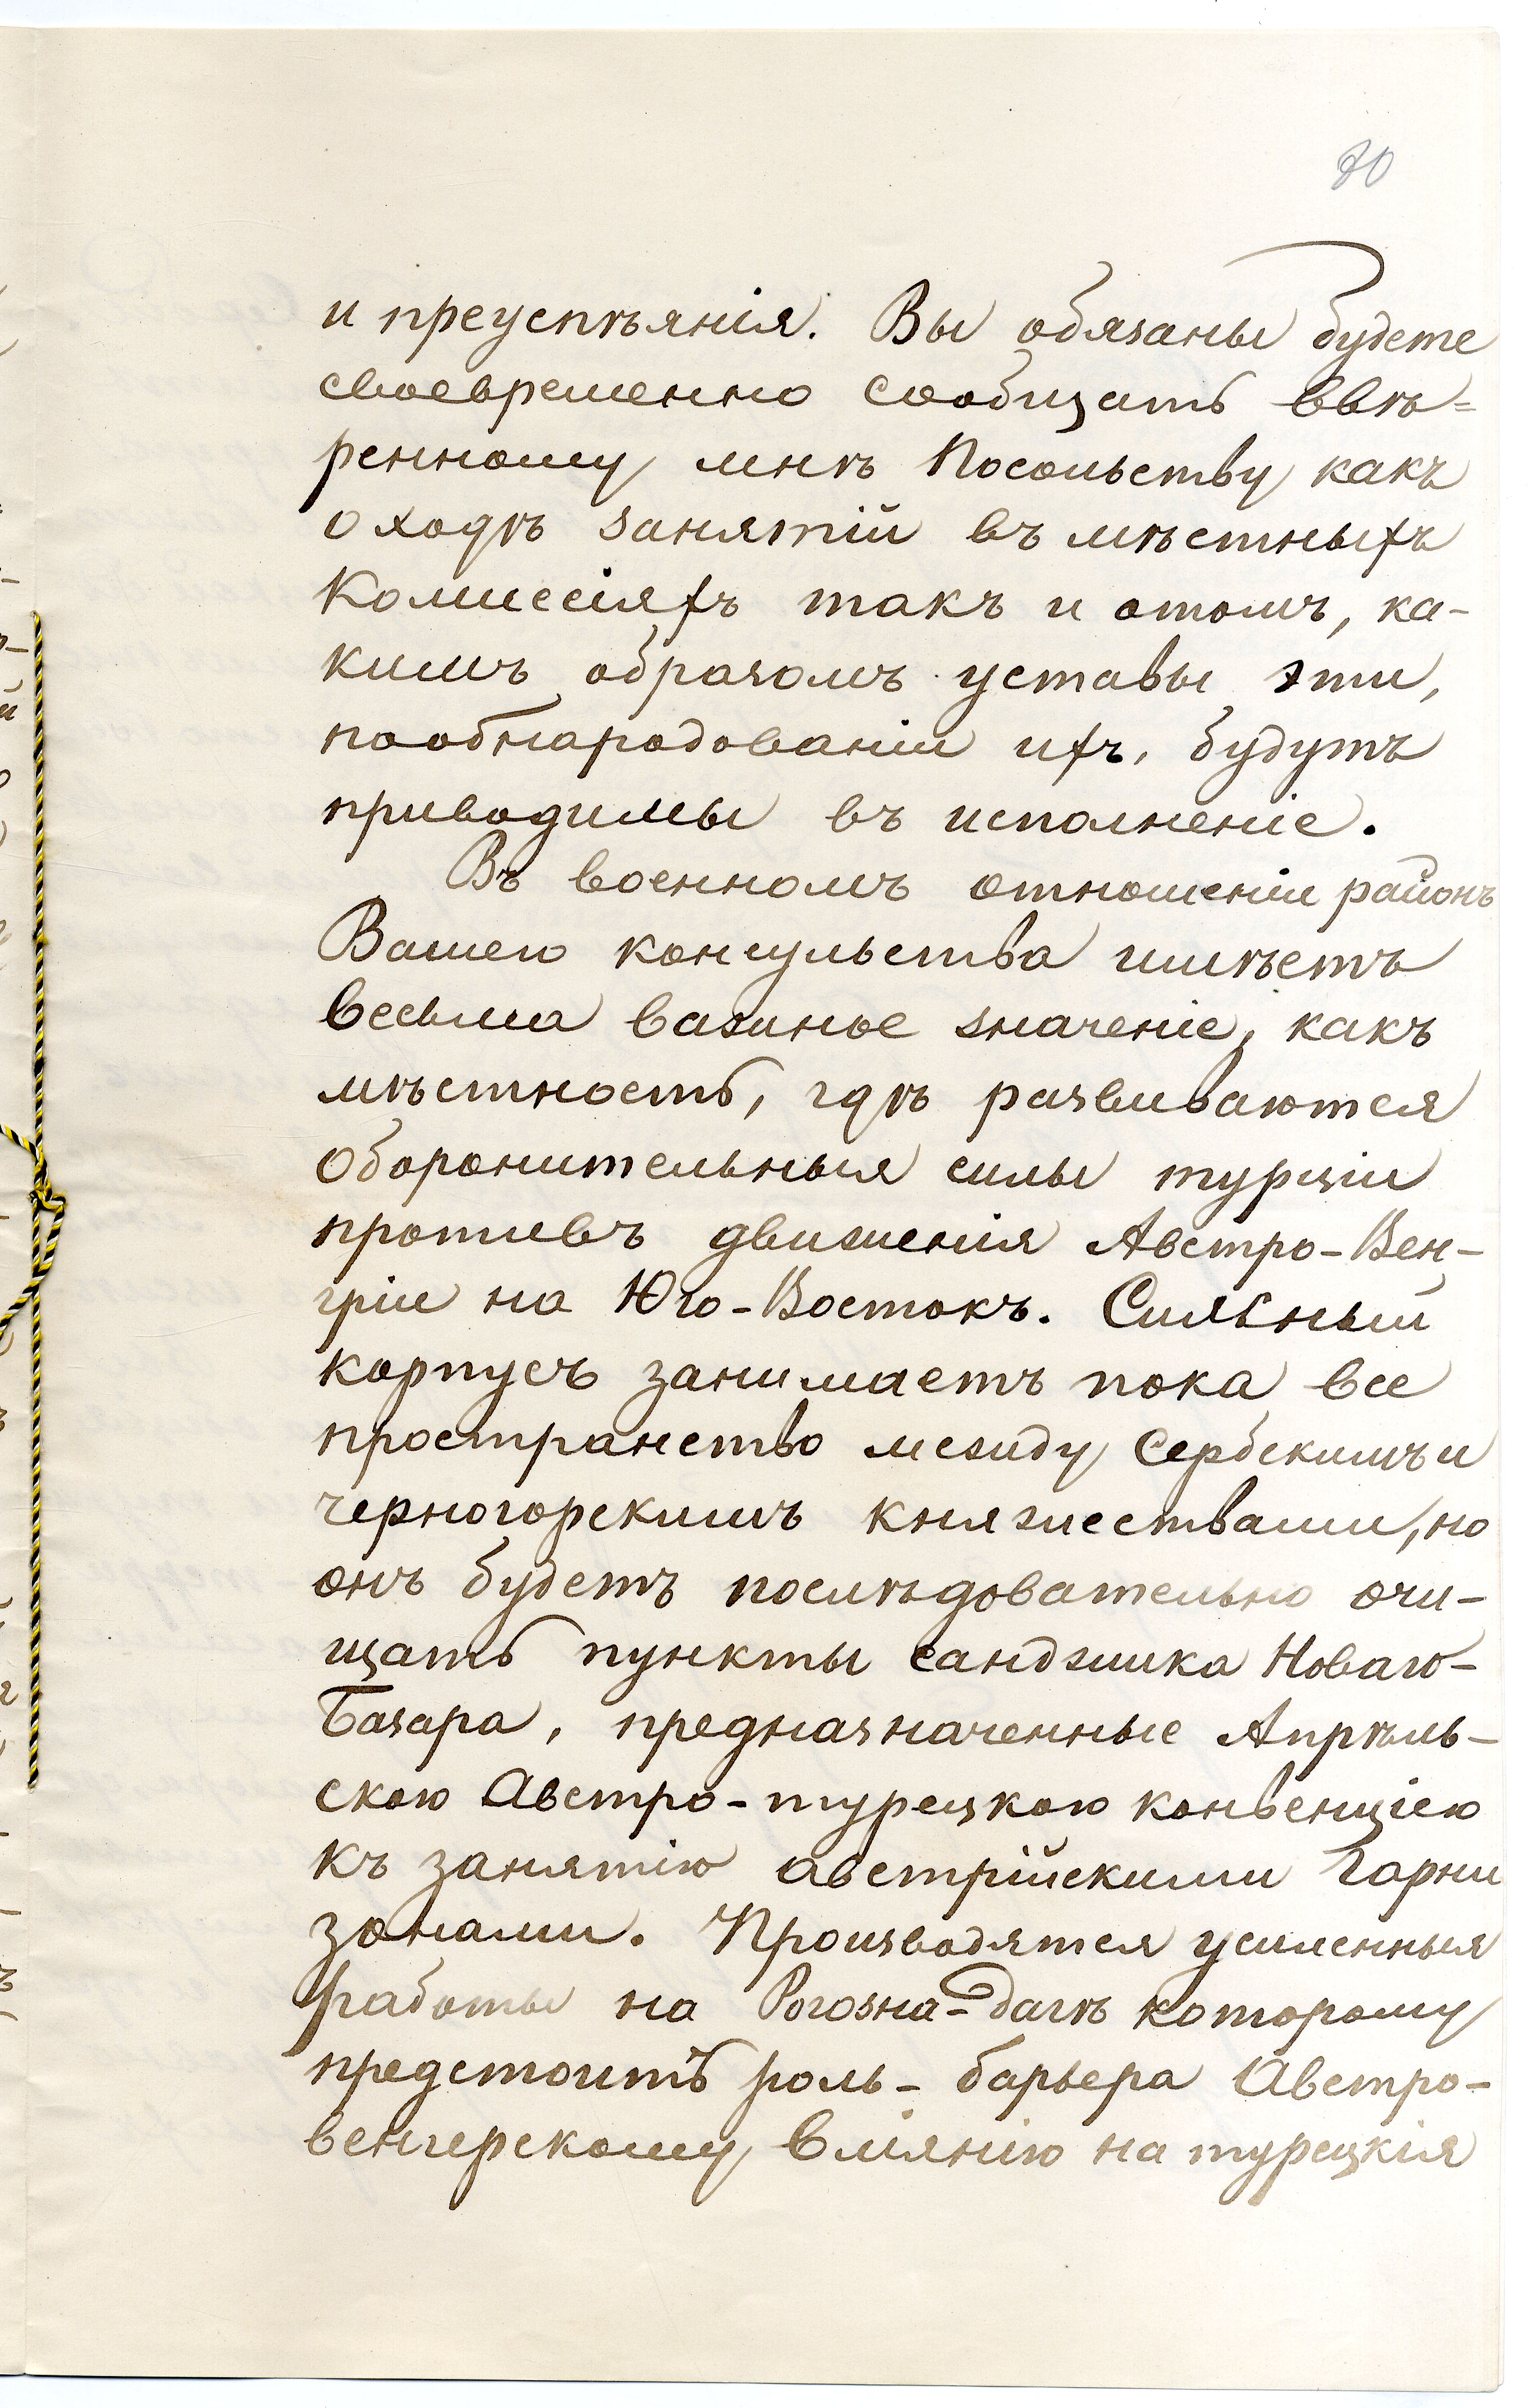 80
и преуспѣянія. Вы обязаны будете
своевременно сообщать ввѣ=
ренному мнѣ Посольству какъ
о ходѣ занятій въ мѣстныхъ
Комиссіяхъ такъ и отомъ, ка-
кимъ образомъ уставы эти,
пообнародованіи ихъ, будутъ
приводимы въ исполненіе.
Въ военномъ отношеніи районъ
Вашего консульства имѣетъ
весьма важное значеніе, какъ
мѣстность, гдѣ развиваются
Оборонительныя силы турціи
противъ движенія Австро-Вен-
гріи на Юго-Востокъ. Сильный
корпусъ занимаетъ пока все
пространство между Сербскимъ и
черногорскимъ княжествами, но
онъ будетъ послѣдовательно очи-
щать пункты санджика Новаго-
Базара, предназначенные Апрѣль-
скою Австро-турецкою конвенціею
къ занятію австрійскими Гарни
зонами. Производятся усиленныя
работы на Рогозна-дагѣ которому
предстоитъ роль - барьера Австро-
венгерскому вліянію на турецкія